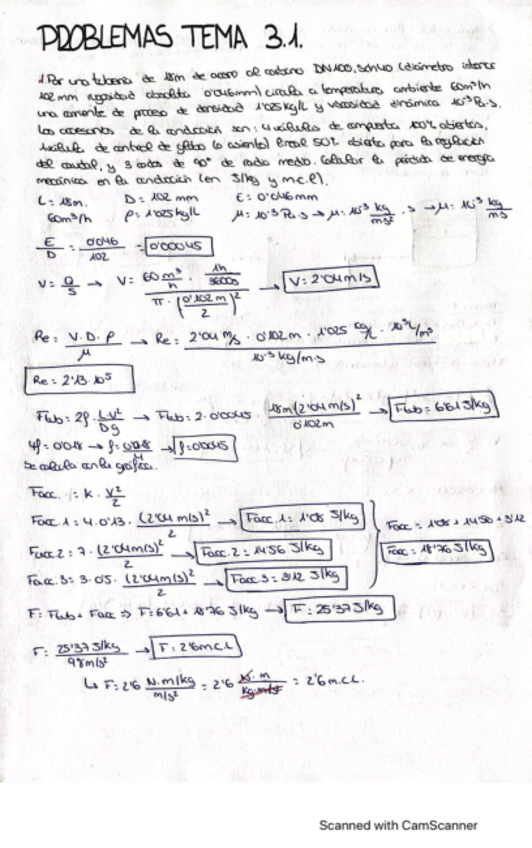 PROBLEMAS TEMA 3.1.
1. Por una tubería de 18m de acero al carbono DN100, SCH40 (diámetro interior
102 mm rugosidad absoluta 0'046mm) circula a temperatura ambiente 60m³/h
una corriente de proceso de densidad 1'025 kg/L y viscosidad dinámica 10⁻³ Pa·s.
Los accesorios de la conducción son: 4 válvulas de compuerta 100% abiertas,
1 válvula de control de globo (o asiento) lineal 50% abierta para la regulación
del caudal, y 3 codos de 90° de radio medio. Calcular la pérdida de energía
mecánica en la conducción (en J/kg y m.c.l).
L = 18m. D = 102 mm ε = 0'046mm
60m³/h ρ = 1'025 kg/L μ = 10⁻³ Pa·s → μ = 10⁻³ kg/ms² · s → μ = 10⁻³ kg/ms
ε/D = 0'046/102 = 0'00045
V = Q/S → V = 60 m³/h · 1h/3600s / π · (0'102m/2)² → V = 2'04 m/s
Re = V·D·ρ/μ → Re = 2'04 m/s · 0'102m · 1'025 kg/L · 10³ L/m³ / 10⁻³ kg/m·s
Re = 2'13·10⁵
Ftub = 2f · LV²/Dg → Ftub = 2 · 0'0045 · 18m(2'04m/s)²/0'102m → Ftub = 6'61 J/kg
4f = 0'018 → f = 0'018/4 → f = 0'0045
se calcula en la gráfica.
Facc. = k · V²/2
Facc. 1 = 4 · 0'13 · (2'04 m/s)²/2 → Facc. 1 = 1'08 J/kg
Facc 2 = 7 · (2'04m/s)²/2 → Facc. 2 = 14'56 J/kg
Facc. 3 = 3 · 0'5 · (2'04m/s)²/2 → Facc. 3 = 3'12 J/kg
Facc = 1'08 + 14'56 + 3'12
Facc = 18'76 J/kg
F = Ftub + Facc ⇒ F = 6'61 + 18'76 J/kg → F = 25'37 J/kg
F = 25'37 J/kg / 9'8 m/s² → F = 2'6 m.c.l
↳ F = 2'6 N·m/kg / m/s² = 2'6 N·m / kg·m/s² = 2'6 m.c.l.
Scanned with CamScanner